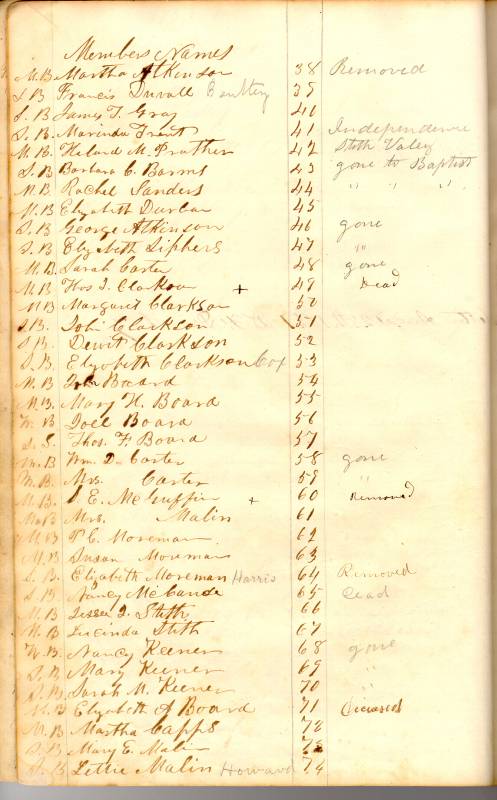 Members Names
M.B Martha Atkinson 38 Removed
S B Francis Duvall 39
S. B James T. Gray 40
S. B. Marinda Trent 41 Independence
M. B. Hiland M. Prather 42 Stith Valey
S. B Barbara C. Barns 43 gone to Baptist
M B Rachel Sanders 44 " " "
M.B Elizabeth Durban 45
S. B George Atkinson 46 gone
S. B Elizabeth Siphers 47 "
M. B. Sarah Carter 48 gone
M B Thos J. Clarkson + 49 Dead
M B Margaret Clarkson 50
S B. John Clarkson 51
S B. Dewit Clarkson 52
S. B. Elizabeth Clarkson Cox 53
M. B John Board 54
M. B. Mary H. Board 55
M. B Joel Board 56
S. S. Thos. F. Board 57
M. B Wm. D. Carter 58 gone
M. B. Mrs. Carter 59 "
M. B. J. E. McGuffin + 60 Removed
M B Mrs. Malin 61
M B P C. Moreman 62
M. B Susan Moreman 63
S. B. Elizabeth Moreman Harris 64 Removed
S. B Nancy McCande 65 dead
M B Jesse J. Stith 66
M. B Lucinda Stith 67
M. B Nancy Keener 68 gone
S. B Mary Keener 69 "
S. B. Sarah M. Keener 70 "
M. B Elizabeth A Board 71 Deceased
M. B Martha Capps 72
S. B Mary E. Malin 73
S. B Lettie Malin Howard 74